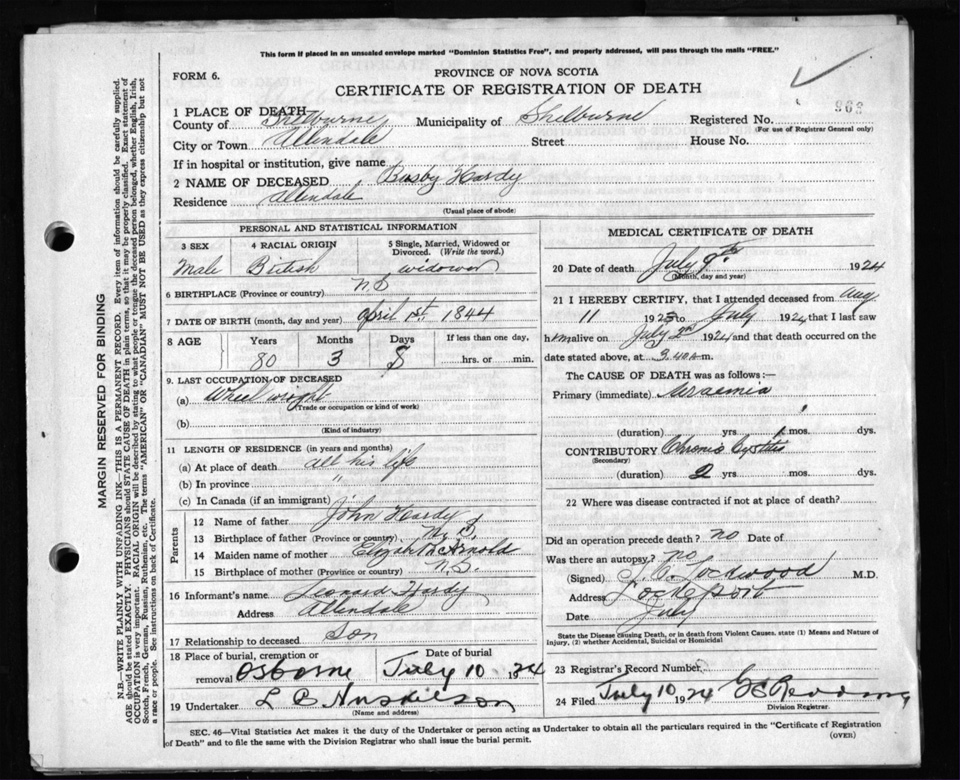 This form if placed in an unsealed envelope marked "Dominion Statistics Free", and properly addressed, will pass through the mails "FREE."
FORM 6.
PROVINCE OF NOVA SCOTIA
CERTIFICATE OF REGISTRATION OF DEATH
1 PLACE OF DEATH
County of Shelburne Municipality of Shelburne Registered No.
(For use of Registrar General only)
City or Town Allendale Street House No.
If in hospital or institution, give name
2 NAME OF DECEASED Busby Hardy
Residence Allendale
(Usual place of abode)
PERSONAL AND STATISTICAL INFORMATION
3 SEX 4 RACIAL ORIGIN 5 Single, Married, Widowed or Divorced. (Write the word.)
Male British widower
6 BIRTHPLACE (Province or country) N.S
7 DATE OF BIRTH (month, day and year) April 1st. 1844
8 AGE Years Months Days If less than one day,
80 3 8 hrs. or min.
9. LAST OCCUPATION OF DECEASED
(a) Wheel wright
(Trade or occupation or kind of work)
(b)
(Kind of industry)
11 LENGTH OF RESIDENCE (in years and months)
(a) At place of death all his life
(b) In province "
(c) In Canada (if an immigrant)
Parents
12 Name of father John Hardy
13 Birthplace of father (Province or country) N.S.
14 Maiden name of mother Arnold
15 Birthplace of mother (Province or country) N.S.
16 Informant's name Leonard Hardy
Address Allendale
17 Relationship to deceased Son
18 Place of burial, cremation or removal Osborne Date of burial July 10 1924
19 Undertaker L C
(Name and address)
MEDICAL CERTIFICATE OF DEATH
20 Date of death July 9th 1924
(Month, day and year)
21 I HEREBY CERTIFY, that I attended deceased from Aug
11 1923 to July 1924 that I last saw
him alive on July 2nd 1924 and that death occurred on the
date stated above, at 3.40 A.m.
The CAUSE OF DEATH was as follows:—
Primary (immediate) Uraemia
(duration) yrs 1 mos. dys.
CONTRIBUTORY Chronic Cystitis
(Secondary)
(duration) 2 yrs. mos. dys.
22 Where was disease contracted if not at place of death?
Did an operation precede death? no Date of
Was there an autopsy? no
(Signed) Lockwood M.D.
Address Lockeport
Date July
State the Disease causing Death, or in death from Violent Causes, state (1) Means and Nature of Injury, (2) whether Accidental, Suicidal or Homicidal
23 Registrar's Record Number
24 Filed July 10 1924
Division Registrar.
SEC. 46—Vital Statistics Act makes it the duty of the Undertaker or person acting as Undertaker to obtain all the particulars required in the "Certificate of Registration
of Death" and to file the same with the Division Registrar who shall issue the burial permit. (OVER)
MARGIN RESERVED FOR BINDING
N.B.—WRITE PLAINLY WITH UNFADING INK—THIS IS A PERMANENT RECORD. Every item of information should be carefully supplied.
AGE should be stated EXACTLY. PHYSICIANS should STATE CAUSE OF DEATH in plain terms, so that it may be properly classified. Exact statement of
OCCUPATION is very important. RACIAL ORIGIN will be described by stating to what people or tongue the deceased person belonged, whether English, Irish,
Scotch, French, German, Russian, Ruthenian, etc. The terms "AMERICAN" or "CANADIAN" MUST NOT BE USED as they express citizenship but not
a race or people. See instructions on back of Certificate.